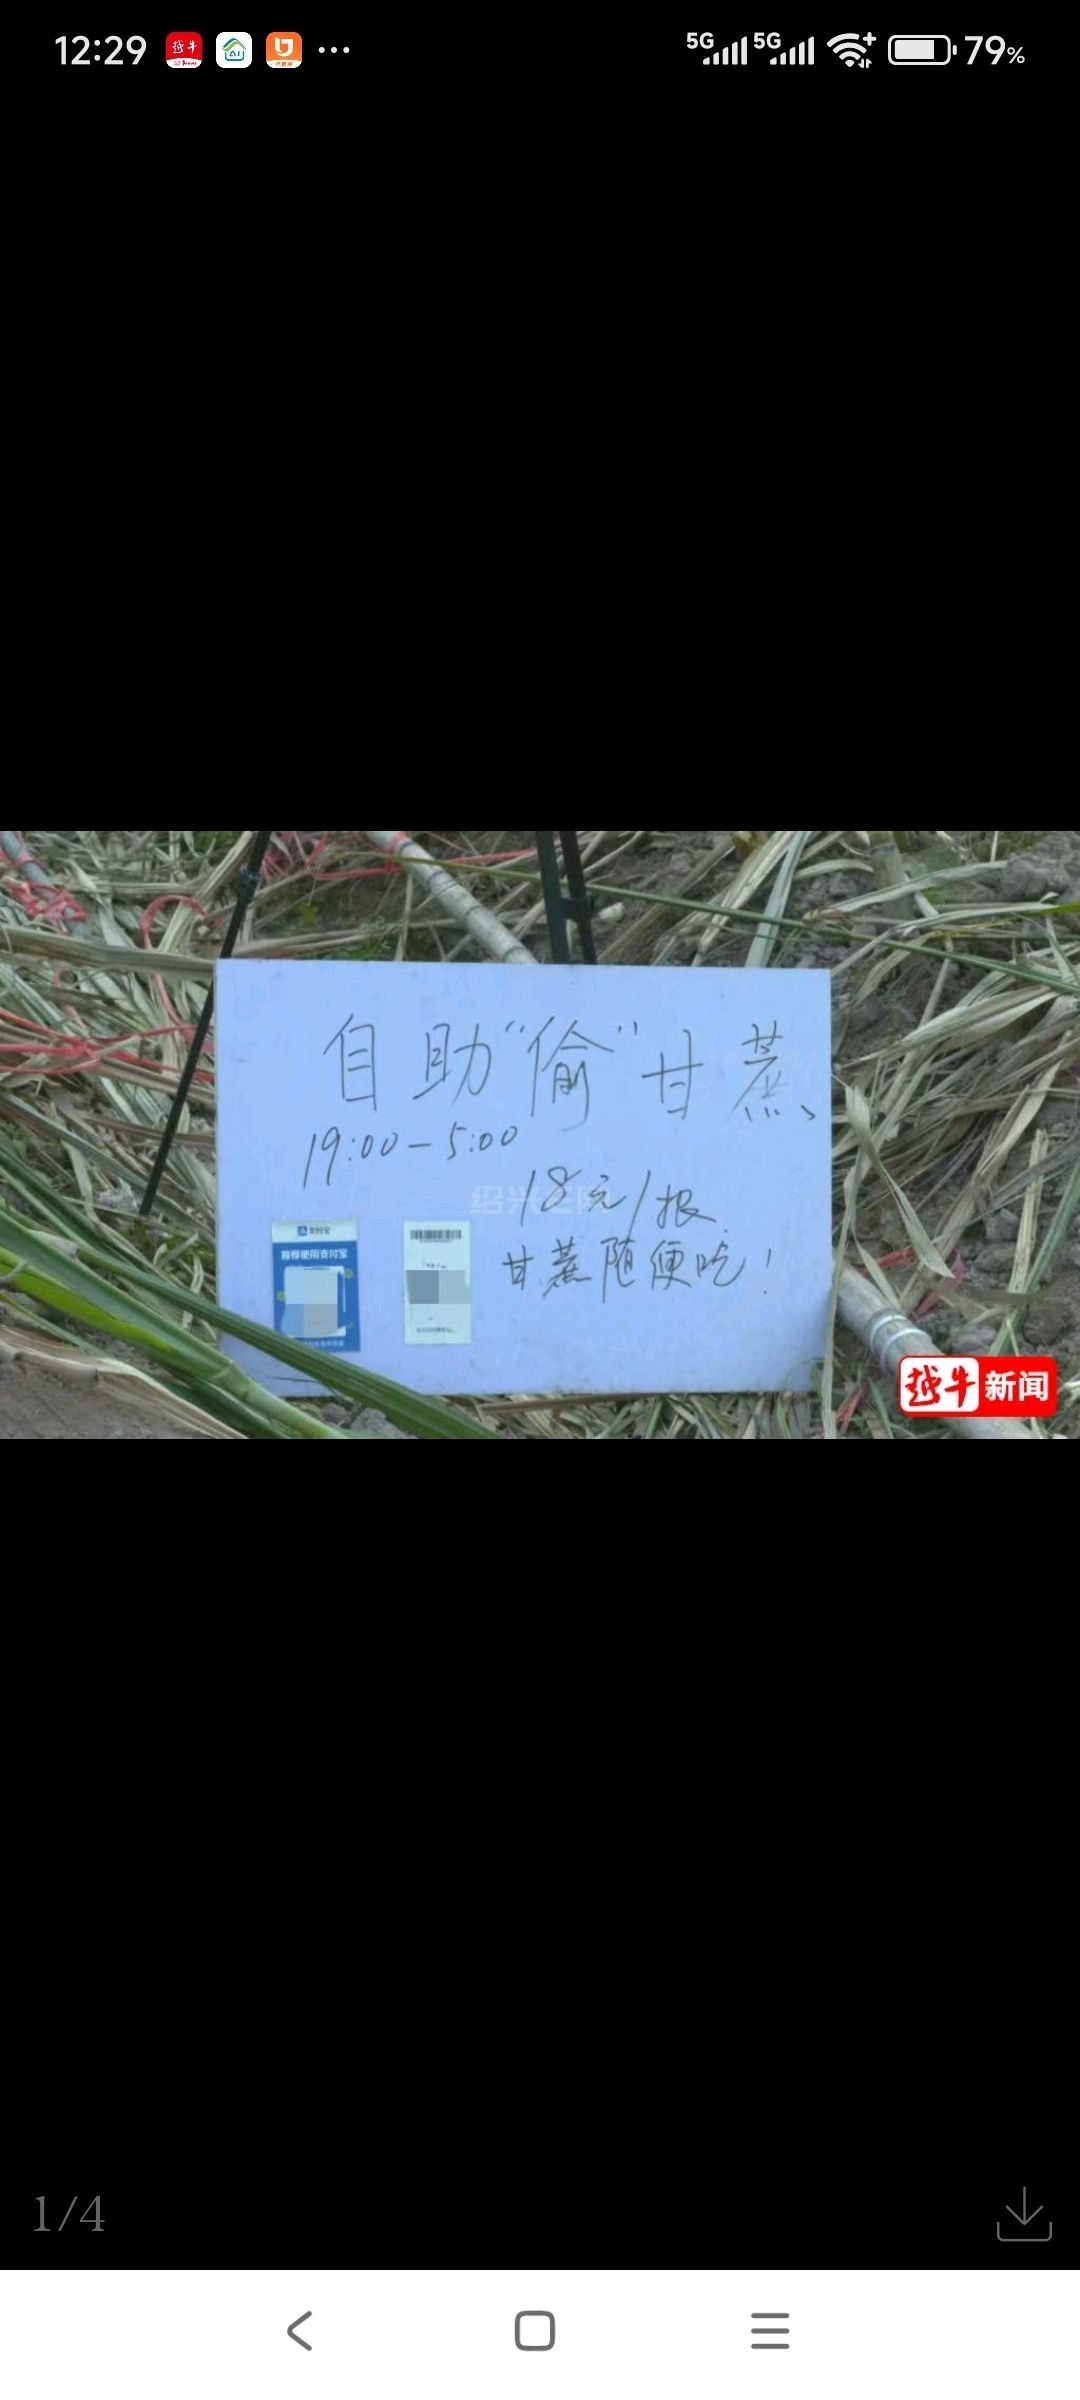 12:29
5G 5G 79%
自助“偷”甘蔗
19:00-5:00
18元/根
甘蔗随便吃!
支付宝
推荐使用支付宝
越牛新闻
1/4